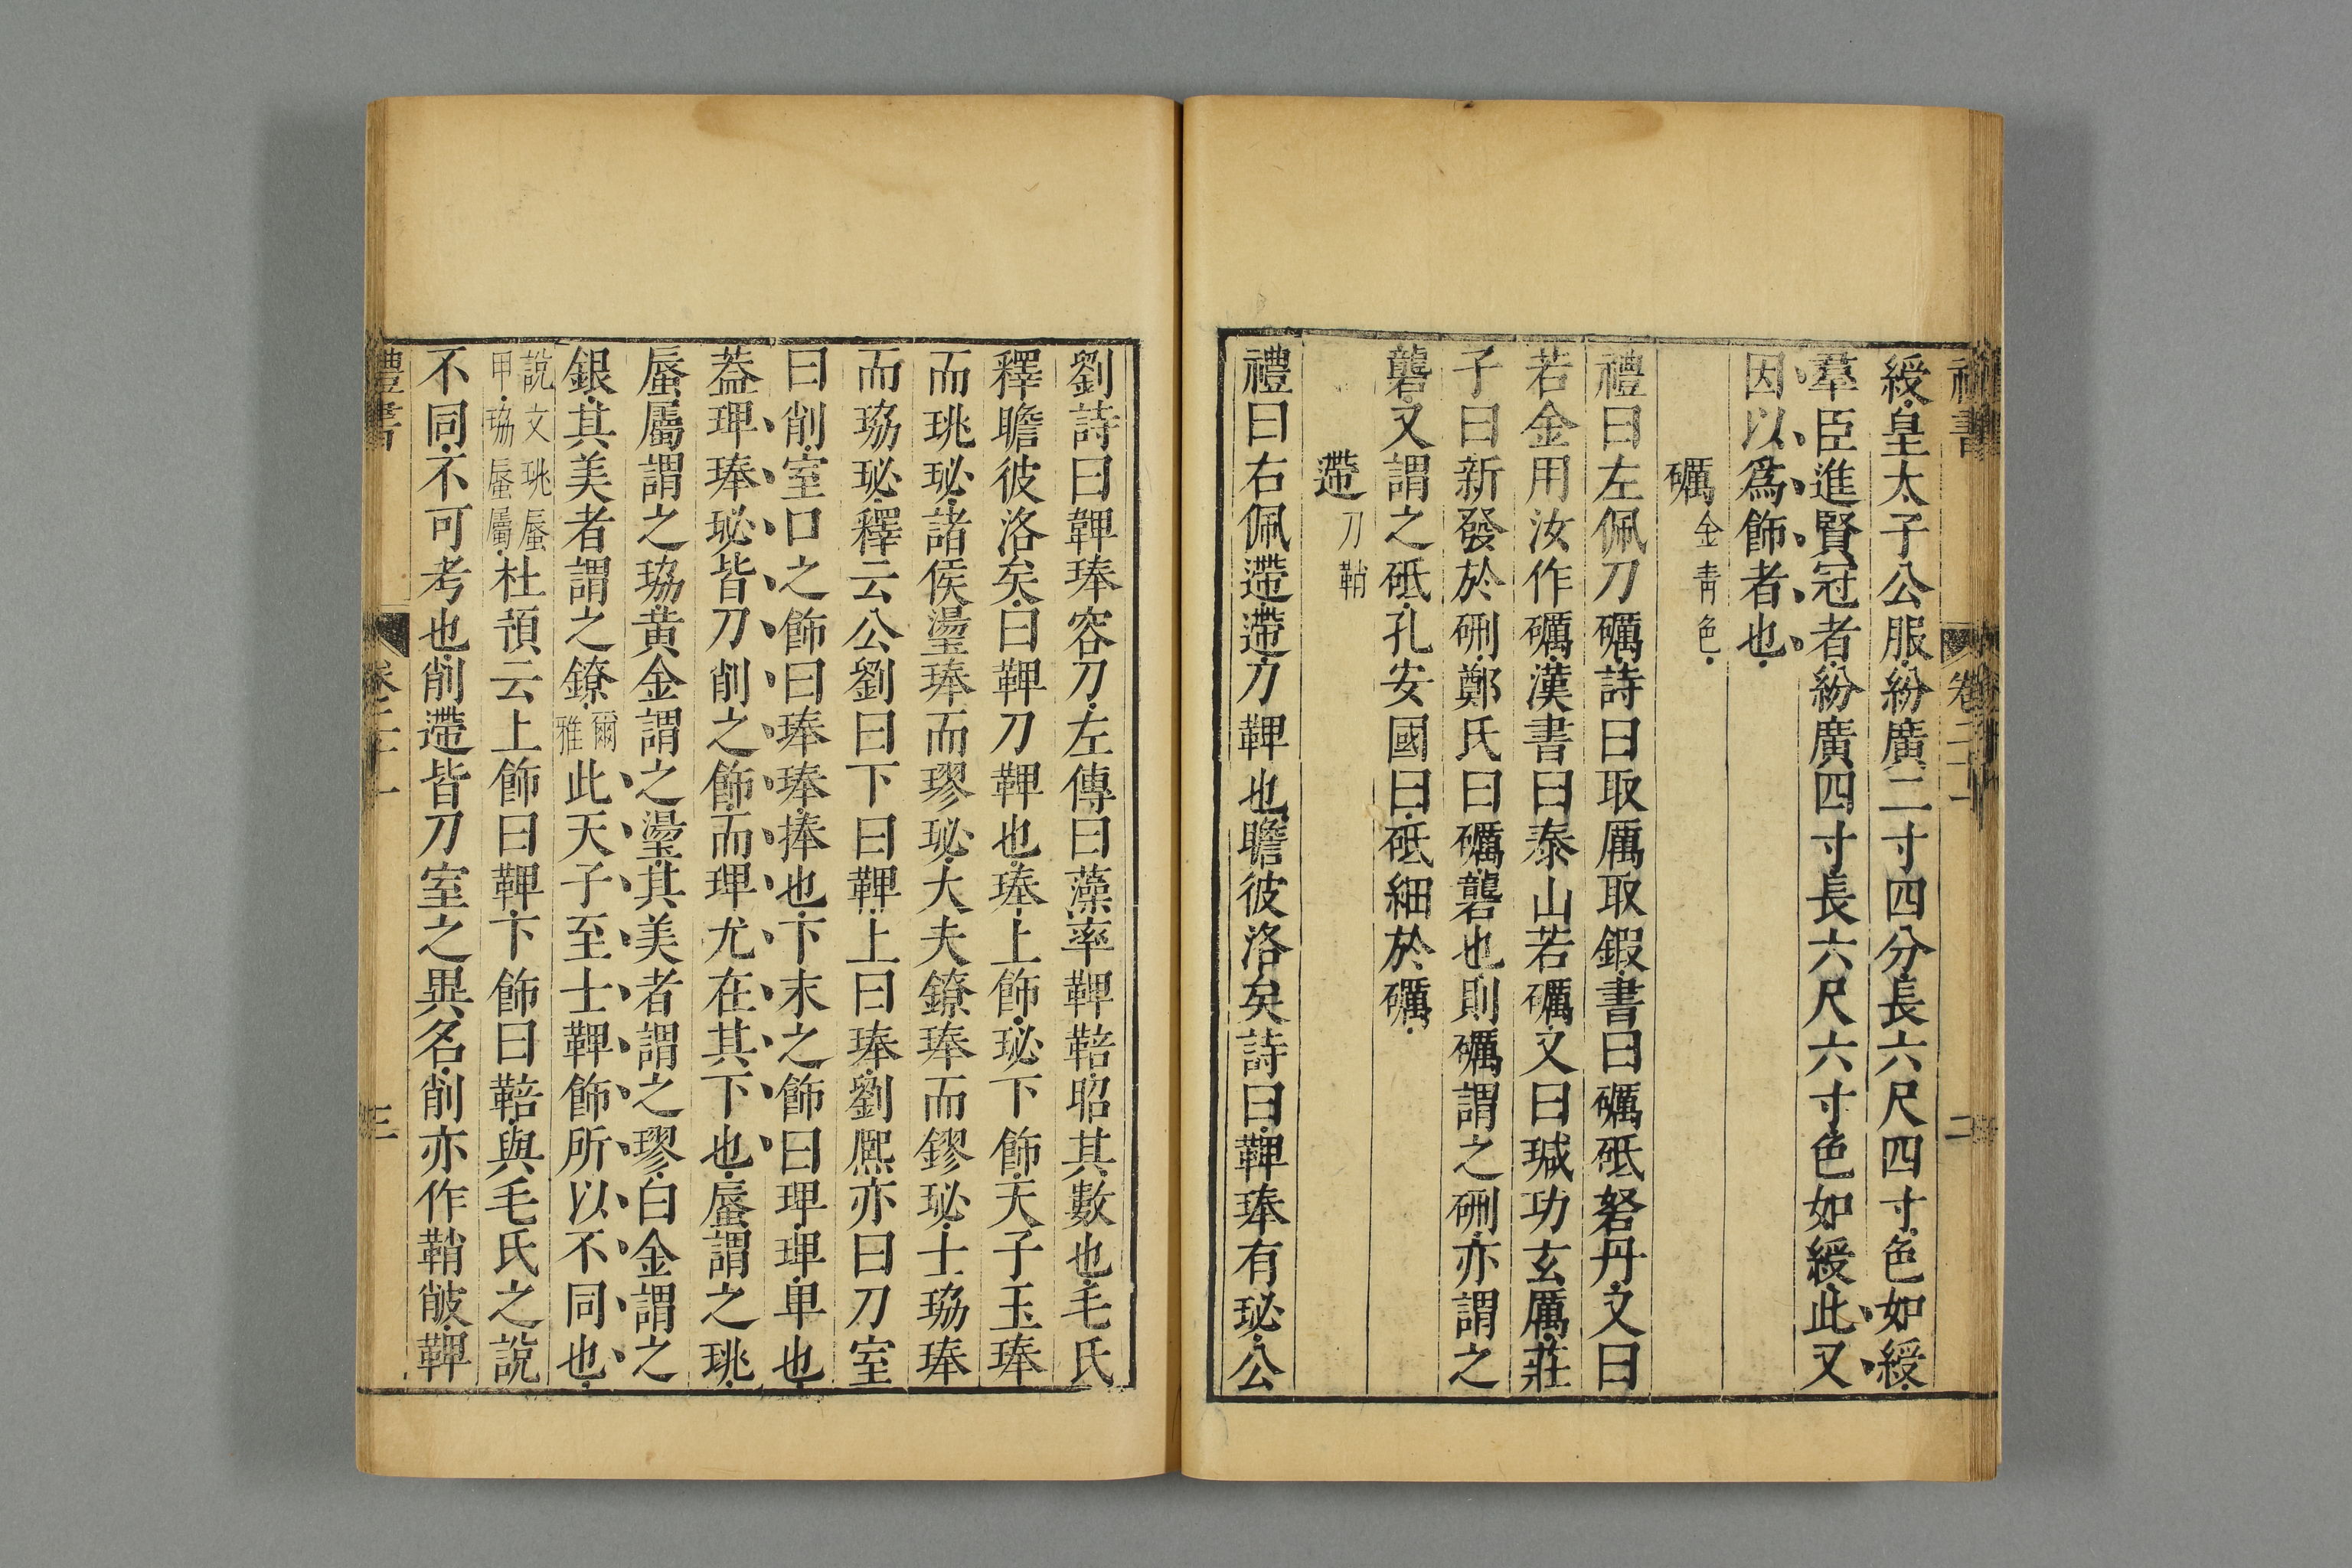 禮書 卷二十一 二
綬皇太子公服紛廣二寸四分長六尺四寸色如綬
羣臣進賢冠者紛廣四寸長六尺六寸色如綬此又
因以爲飾者也
礪金青色
禮曰左佩刀礪詩曰取厲取鍜書曰礪砥砮丹又曰
若金用汝作礪漢書曰泰山若礪又曰瑊功玄厲莊
子曰新發於硎鄭氏曰礪礱也則礪謂之硎亦謂之
礱又謂之砥孔安國曰砥細於礪
遰刀鞘
禮曰右佩遰遰刀鞞也瞻彼洛矣詩曰鞞琫有珌公
劉詩曰鞞琫容刀左傳曰藻率鞞鞛昭其數也毛氏
釋瞻彼洛矣曰鞞刀鞞也琫上飾珌下飾天子玉琫
而珧珌諸侯璗琫而璆珌大夫鐐琫而鏐珌士珕琫
而珕珌釋云公劉曰下曰鞞上曰琫劉熈亦曰刀室
曰削室口之飾曰琫琫捧也下末之飾曰琕琕卑也
葢琕琫珌皆刀削之飾而琕尤在其下也蜃謂之珧
蜃屬謂之珕黄金謂之璗其美者謂之璆白金謂之
銀其美者謂之鐐爾雅此天子至士鞞飾所以不同也
說文珧蜃甲珕蜃屬杜預云上飾曰鞞下飾曰鞛與毛氏之說
不同不可考也削遰皆刀室之異名削亦作鞘䩛鞞
禮書 卷二十一 三